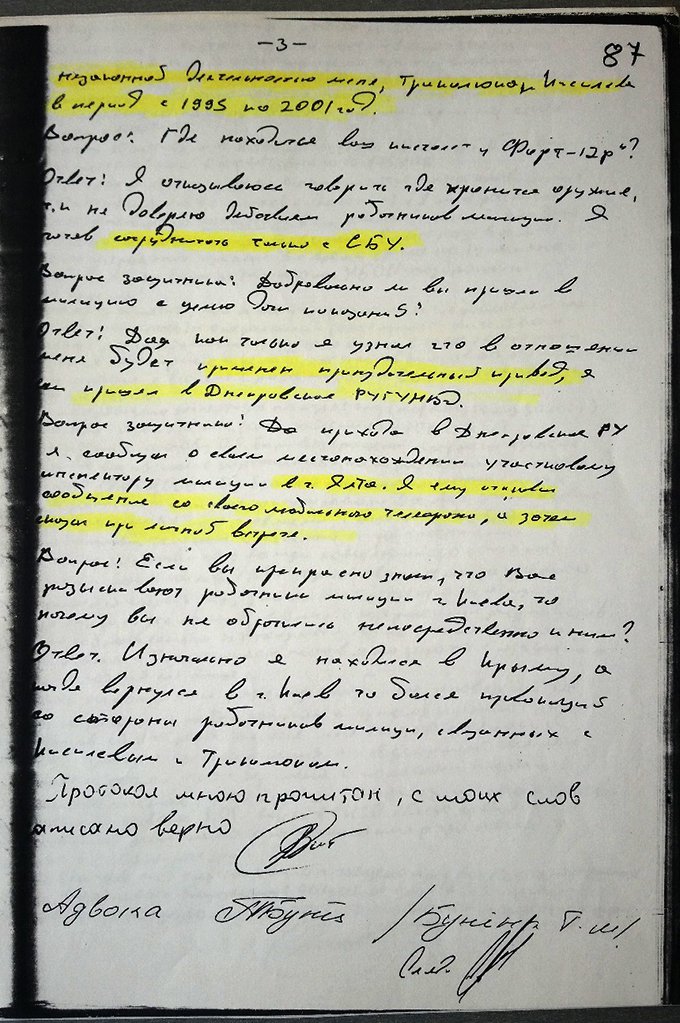 -3-
87
незаконной деятельностью меня,
в период с 1995 по 2001 год.
Вопрос: Где находится ваш пистолет „Форт-12р"?
Ответ: Я отказываюсь говорить где хранится оружие,
т.к. не доверяю действиям работников милиции. Я
готов сотрудничать только с СБУ.
Вопрос защитника: Добровольно ли вы пришли в
милицию с целью дачи показаний?
Ответ: Да как только я узнал что в отношении
меня будет применен принудительный привод, я
сам пришел в Днепровское РУГУМВД.
Вопрос защитника: До прихода в Днепровское РУ
я сообщил о своем местонахождении участковому
инспектору милиции в г. Ялта. Я ему отправил
сообщение со своего мобильного телефона, а затем
при личной встрече.
Вопрос: Если вы прекрасно знали, что Вас
разыскивают работники милиции г. Киева, то
почему вы не обратились непосредственно к ним?
Ответ. Изначально я находился в Крыму, а
когда вернулся в г. Киев то боялся провокаций
со стороны работников милиции, связанных с
Киселевым и
Протокол мною прочитан, с моих слов
записано верно
Адвокат